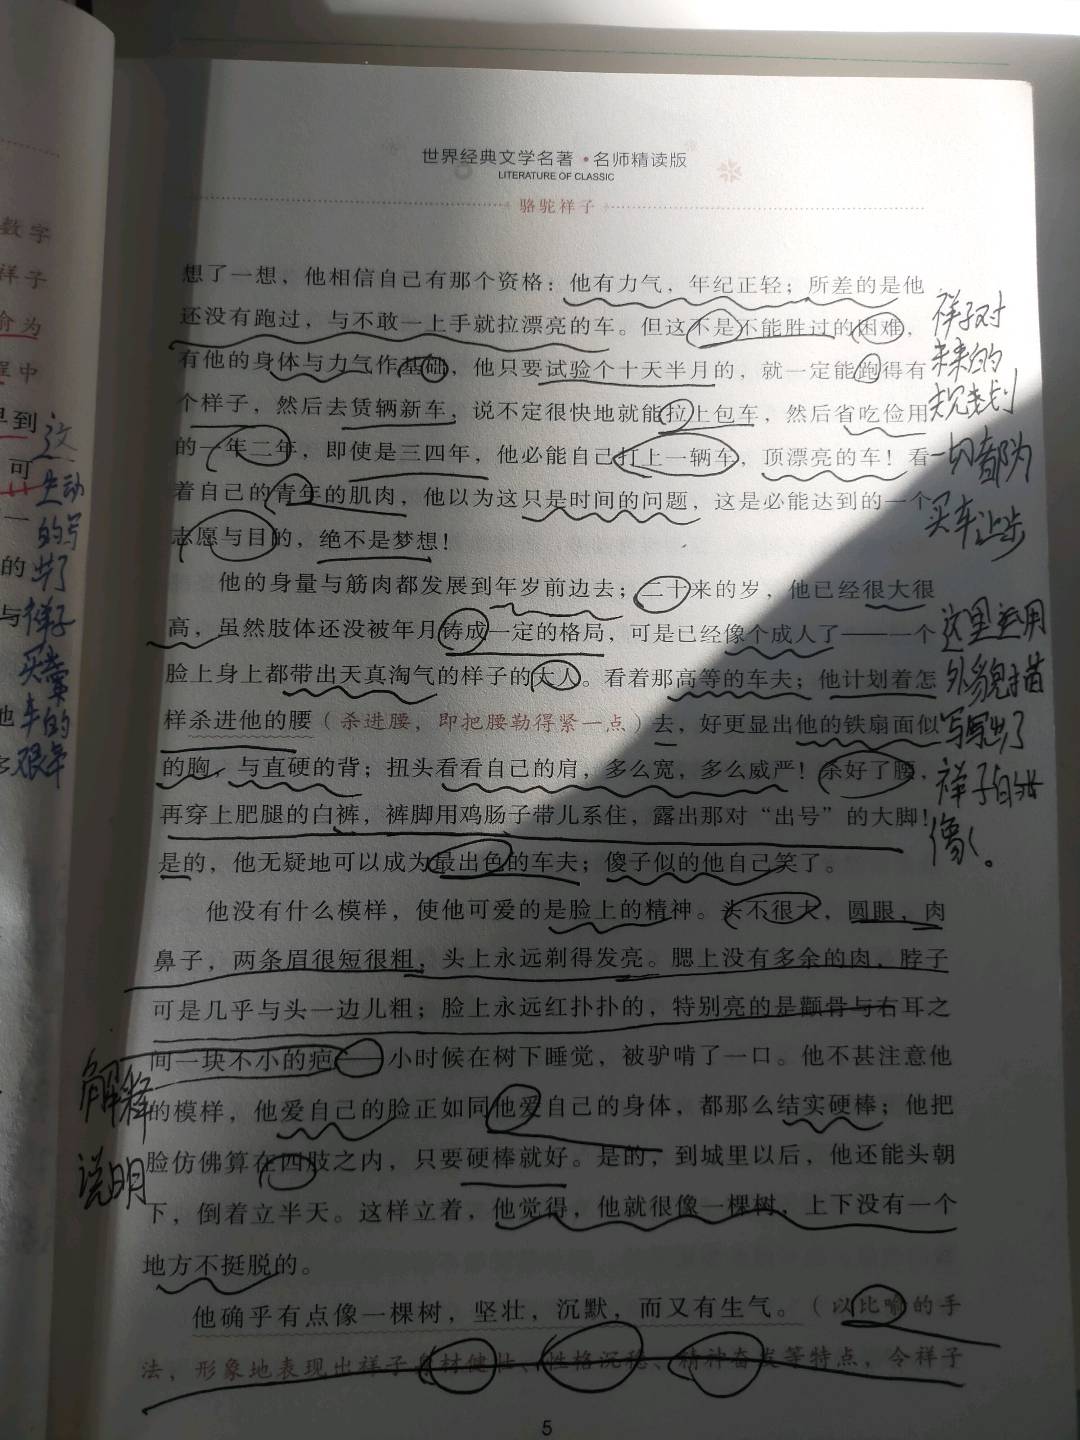 世界经典文学名著·名师精读版
LITERATURE OF CLASSIC
骆驼祥子
想了一想，他相信自己有那个资格：他有力气，年纪正轻；所差的是他
还没有跑过，与不敢一上手就拉漂亮的车。但这不是不能胜过的困难，
有他的身体与力气作基础，他只要试验个十天半月的，就一定能跑得有
个样子，然后去赁辆新车，说不定很快地就能拉上包车，然后省吃俭用
的一年二年，即使是三四年，他必能自己打上一辆车，顶漂亮的车！看
着自己的青年的肌肉，他以为这只是时间的问题，这是必能达到的一个
志愿与目的，绝不是梦想！
他的身量与筋肉都发展到年岁前边去；二十来的岁，他已经很大很
高，虽然肢体还没被年月铸成一定的格局，可是已经像个成人了——一个
脸上身上都带出天真淘气的样子的大人。看着那高等的车夫；他计划着怎
样杀进他的腰（杀进腰，即把腰勒得紧一点）去，好更显出他的铁扇面似
的胸，与直硬的背；扭头看看自己的肩，多么宽，多么威严！杀好了腰，
再穿上肥腿的白裤，裤脚用鸡肠子带儿系住，露出那对“出号”的大脚！
是的，他无疑地可以成为最出色的车夫；傻子似的他自己笑了。
他没有什么模样，使他可爱的是脸上的精神。头不很大，圆眼，肉
鼻子，两条眉很短很粗，头上永远剃得发亮。腮上没有多余的肉，脖子
可是几乎与头一边儿粗；脸上永远红扑扑的，特别亮的是颧骨与右耳之
间一块不小的疤——小时候在树下睡觉，被驴啃了一口。他不甚注意他
的模样，他爱自己的脸正如同他爱自己的身体，都那么结实硬棒；他把
脸仿佛算在四肢之内，只要硬棒就好。是的，到城里以后，他还能头朝
下，倒着立半天。这样立着，他觉得，他就很像一棵树，上下没有一个
地方不挺脱的。
他确乎有点像一棵树，坚壮，沉默，而又有生气。（以比喻的手
法，形象地表现出祥子身材健壮、性格沉稳、精神奋发等特点，令祥子
5
祥子对
未来的
一切都为
买车让步
这里运用
外貌描
写写出了
祥子自
像。
解释
说明
数字
祥子
为
程中
早到
可
的
与
他
这
生动
的写
出了
祥子
买
车的
艰辛